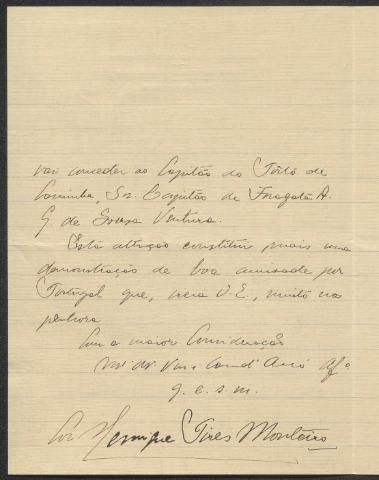 vai conceder ao Capitão do Pôrto de
Coimbra, Snr. Capitão de Fragata A.
G. de Sousa Ventura.
Esta atenção constitui mais uma
demonstração de boa amisade por
Portugal que, creia V. E., muito nos
penhora
Com a maior Consideração
de V.
g. e. s. m.
Cor Henrique Pires Monteiro